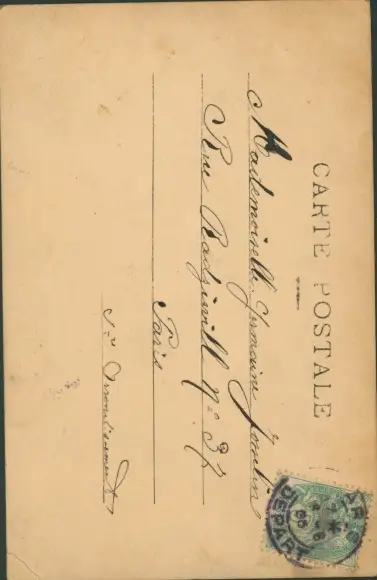 CARTE POSTALE
Mademoiselle Germaine
Rue Radziwill Nº 37
Paris
1er Arrondissement
PARIS
DEPART
05